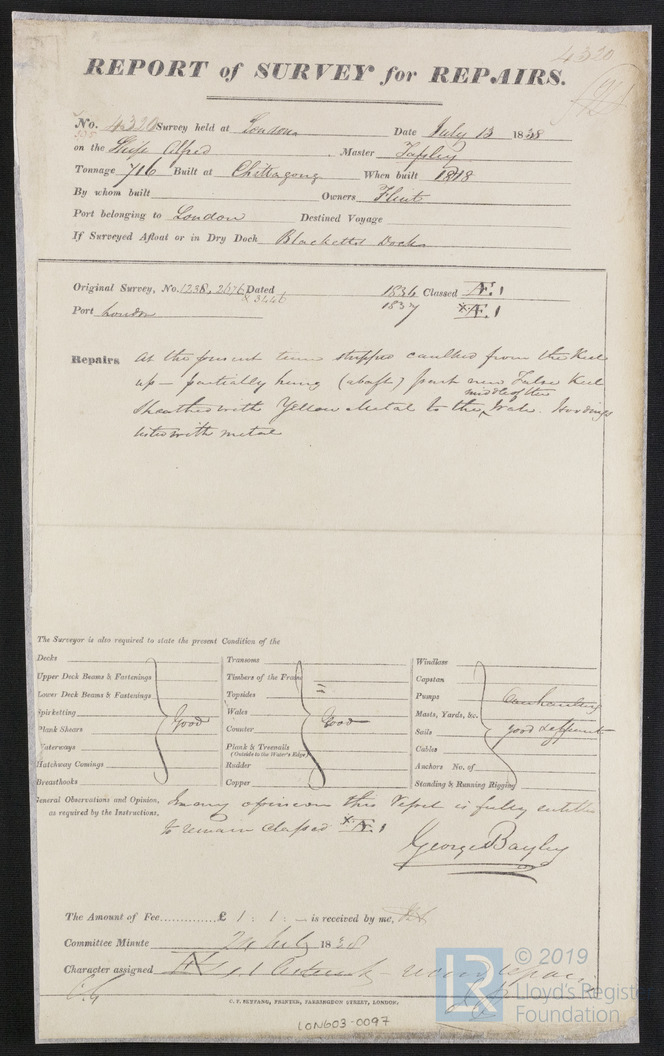 4320
REPORT of SURVEY for REPAIRS.
No. 4320 Survey held at London Date July 13 1838
on the Ship Alfred , Master Tapley
Tonnage 716 Built at Chittagong When built 1818
By whom built Owners Flint
Port belonging to London Destined Voyage
If Surveyed Afloat or in Dry Dock Blacketts Dock
Original Survey, No. 1238, 2676 Dated 1836 Classed Æ 1
& 3446
Port London 1837 *Æ 1
Repairs At the present time stripped caulked from the Keel
up – partially hung (abaft) part new False Keel
middle of the
Sheathed with Yellow Metal to the Wale. Hoodings
with metal
The Surveyor is also required to state the present Condition of the
Decks
Upper Deck Beams & Fastenings
Lower Deck Beams & Fastenings
Spirketting
Plank Shears
Waterways
Hatchway Comings
Breasthooks
Good
Transoms
Timbers of the Frame
Topsides
Wales
Counter
Plank & Treenails
(Outside to the Water's Edge)
Rudder
Copper
Good
Windlass
Capstan
Pumps
Masts, Yards, &c.
Sails
Cables
Anchors No. of
Standing & Running Rigging
Overhauling
good & efficient
General Observations and Opinion, In my opinion this Vessel is fully entitled
as required by the Instructions, to remain Classed *Æ 1
George Bayley
The Amount of Fee..............£ 1 : 1 : – is received by me,
Committee Minute 24 July 1838
Character assigned
C. F. SEYFANG, PRINTER, FARRINGDON STREET, LONDON.
LON603-0097
LR
© 2019
Lloyd's Register
Foundation